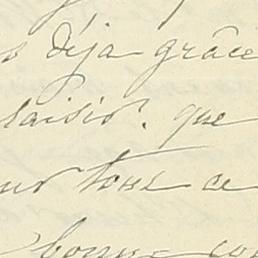 déja grâce
laisir. que
tous ce
bonne